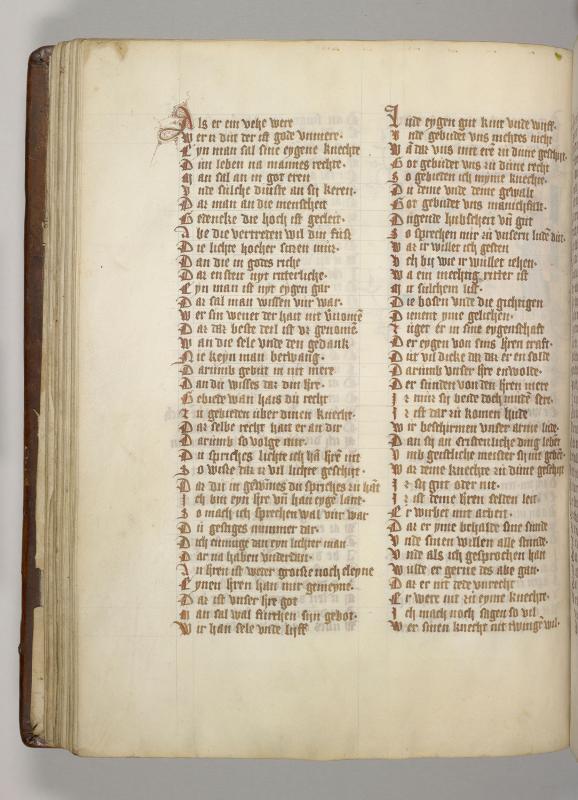 Als er ein vehe were
Wer n dut der ist gode vnmere.
Eyn man sal sine eygene knechte
Dun leben na mannes rechte.
Man sal an in got eren
Vnde sulche dinste an sij keren.
Dar man an die menscheit
Gedencke die hoch ist geleit.
Abe die vertreten wil din fust
Die lichte hocher sitzen mus.
Dan die in godes riche
Daz ensteit nyt ritterliche.
Eyn man ist nyt eygen gar
Daz sal man wissen vur war.
Wer sin wener der hait nit vernomē
Daz daz beste deil ist vz genomē.
Wan die sele vnde den gedank
Nie keyn man betwang.
Darumb gebut in nit mere
Dan du wisses daz din hre.
Gebiede wan hais du recht
Zu gebieden uber dinen knecht.
Daz selbe recht hait er an dir
Darumb so volge mir.
Du spriches lichte ich hā hre nit
So wisse daz iz vil lichte geschiet.
Daz dut in gewunes du spriches zu hāt
Ich bin eyn hre vn̄ han eygē lant.
So mach ich sprechen wal vur war
Du gesiges nummer dar.
Dich enmuge dan eyn lichter man
Dar na haben vnderdan.
An hren ist weder groisze noch cleyne
Eynen hren han mir gemeyne.
Daz ist vnser hre got
Man sal wal furchten sijn gebot.
Wir han sele vnde lijff
Inde eygen gut kint vnde wijff.
Vnde gebudet vns nichtes nicht
Wā daz vns mit erē zu dune geschiet.
Got gebudet vns zu dune recht
So gebieden ich myme knechte.
Du deme vnde deme gewalt
Got gebudet vns manichfalt.
Dugende hubscheit vn̄ gut
So sprechen mir zu vnsern ludē dut.
War ir wullet ich gesten
Vch bij wie ir wullet zehen.
Wa ein mechtig ritter ist
In sulchem list.
Die bosen vnde die gichtigen
Dienent yme gelichen.
Zuget er in sine eygenschaft
Der eygen von sins hren craft.
Dut vil dicke daz daz er en solde
Darumb vnser hre enwolde.
Der sunden von den hren mere
Iz muz sij beide doch muwē sere.
Iz ist dar zu komen hude
Wir beschirmen vnser arme lude.
Dan sij an cristenlicke ding lebē
Vmb geistliche meister sij nit gebē.
Waz deme knechte zu dune geschiet
Iz sij gut oder nit.
Iz ist deme hren selden leit
Er wirbet mit arbeit.
Daz er yme behalde sine sinde
Vnde sinen willen alle stunde.
Vnde als ich gesprochen han
Wulde er gerne des abe gan.
Daz er nit dede vnrecht
Er were nit zu eyme knechte.
Ich mach noch sagen so vil
Wer sinen knecht nit twingē wil.